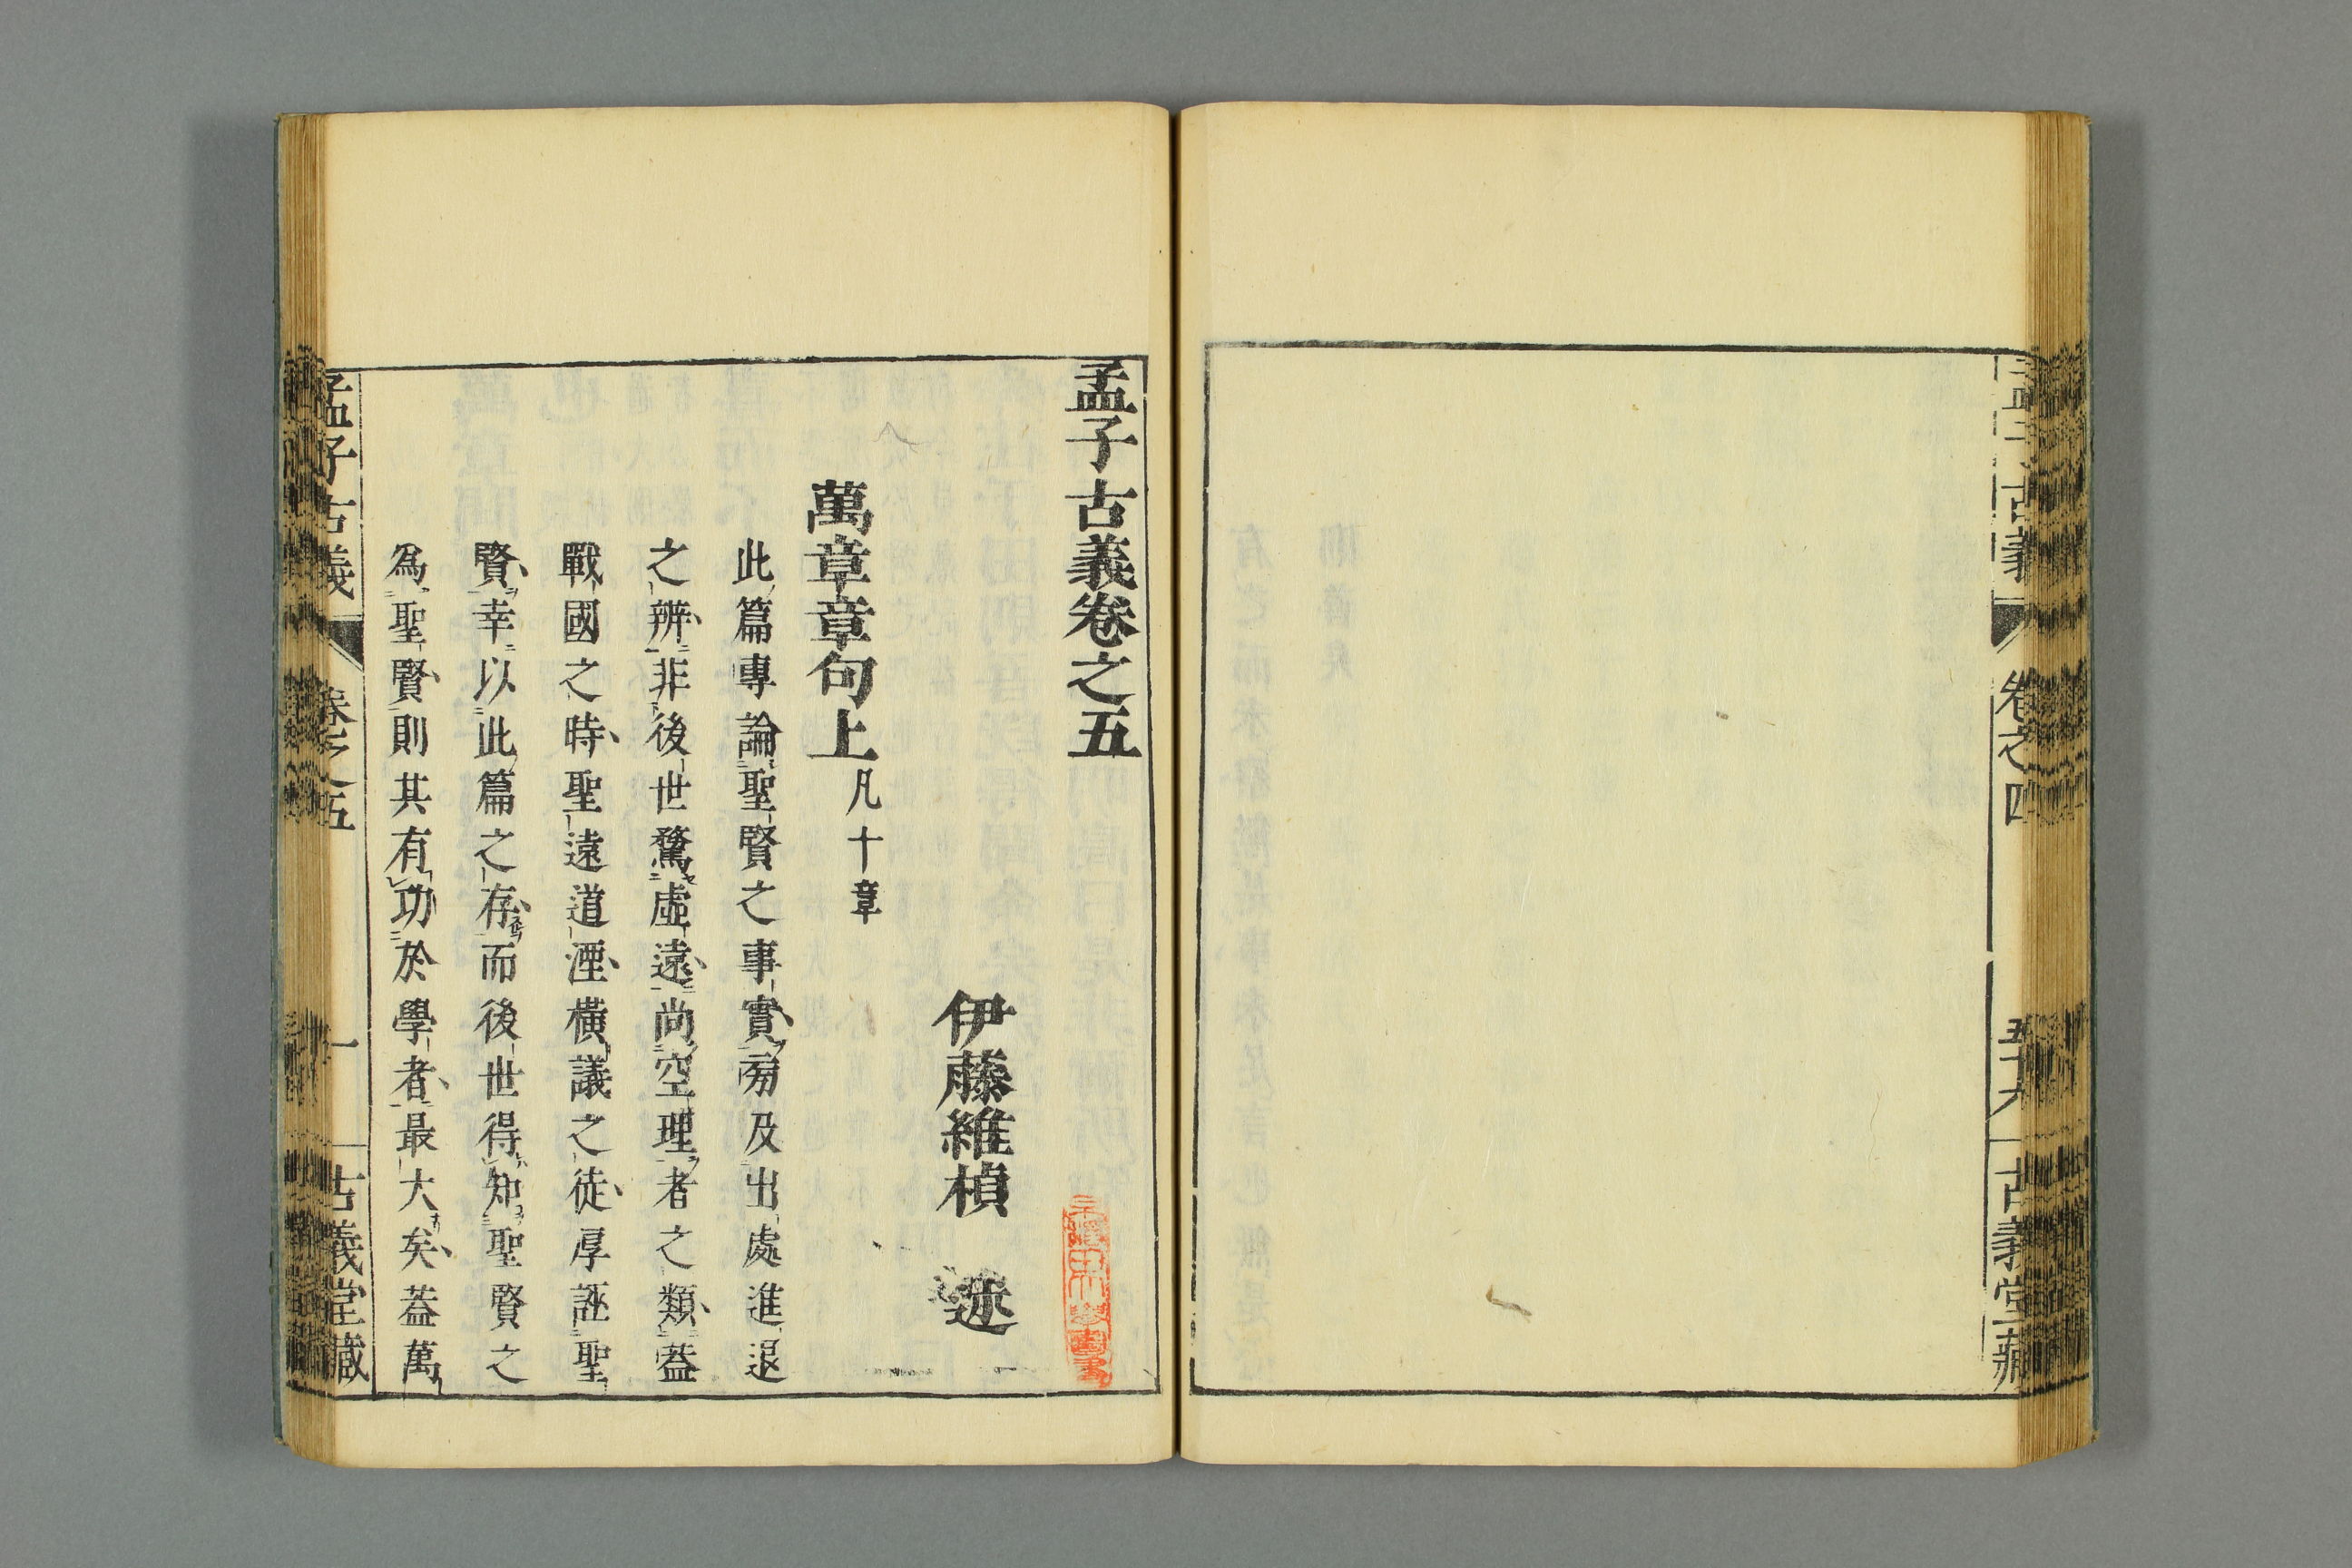 孟子古義
卷之四
五十六
古義堂藏
孟子古義卷之五
伊藤維楨 述
萬章章句上凡十章
此篇專論聖賢之事實旁及出處進退
之辨非後世騖虛遠尚空理者之類蓋
戰國之時聖遠道湮橫議之徒厚誣聖
賢幸以此篇之存而後世得知聖賢之
為聖賢則其有功於學者最大矣蓋萬
孟子古義
卷之五
一
古義堂藏